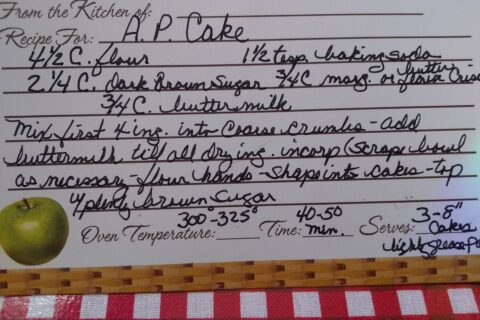 From the Kitchen of:
Recipe For: A.P. Cake
4½ C. flour 1½ tsp. baking soda
2¼ C. dark Brown Sugar ¾ C marg. or butter
¾ C. buttermilk
Mix first 4 ing. into Coarse crumbs - add
buttermilk till all dry ing. incorp (scrape bowl
as necessary - flour hands - shape into cakes - top
w/ plenty brown sugar
Oven Temperature: 300-325° Time: 40-50 min. Serves: 3-8" Cakes